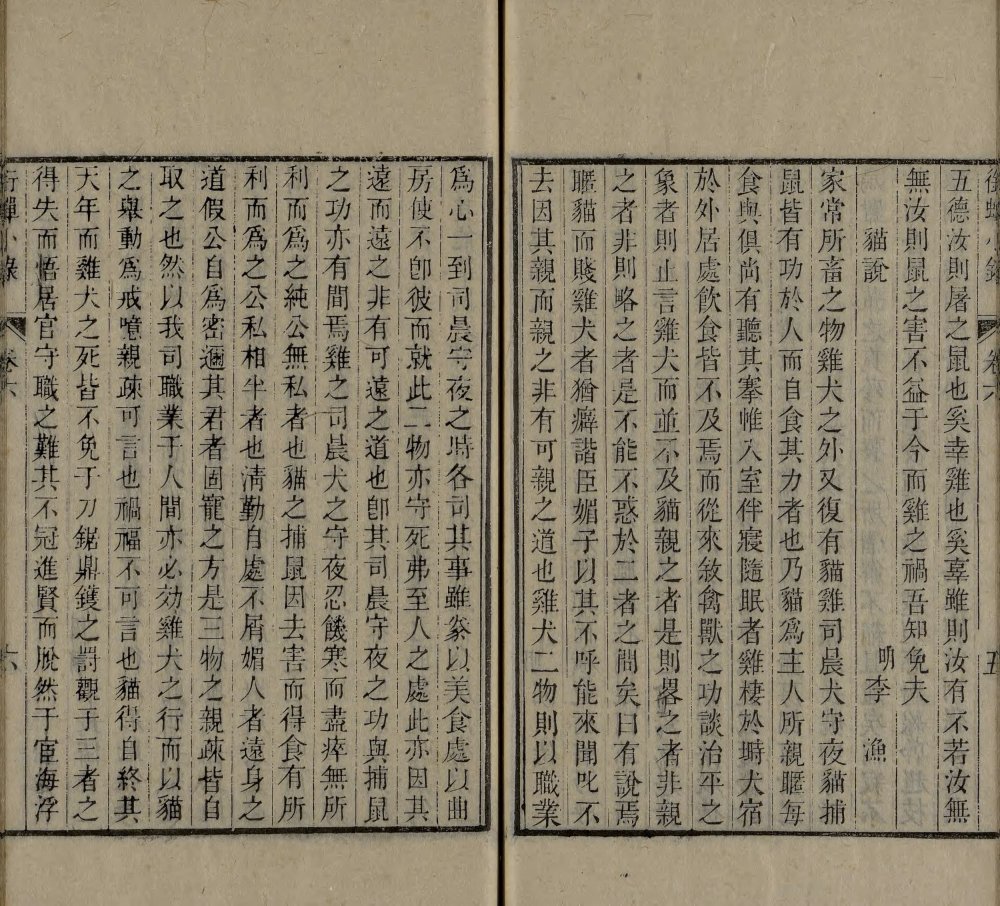 銜蟬小錄 卷六 五
五德汝則屠之鼠也奚幸雞也奚辜雖則汝有不若汝無
無汝則鼠之害不益于今而雞之禍吾知免夫
貓說 明李漁
家常所畜之物雞犬之外又復有貓雞司晨犬守夜貓捕
鼠皆有功於人而自食其力者也乃貓為主人所親暱每
食與俱尚有聽其搴帷入室伴寢隨眠者雞棲於塒犬宿
於外居處飲食皆不及焉而從來敘禽獸之功談治平之
象者則止言雞犬而並不及貓親之者是則畧之者非親
之者非則略之者是不能不惑於二者之間矣曰有說焉
暱貓而賤雞犬者猶癖諧臣媚子以其不呼能來聞叱不
去因其親而親之非有可親之道也雞犬二物則以職業
爲心一到司晨守夜之時各司其事雖豢以美食處以曲
房使不卽彼而就此二物亦守死弗至人之處此亦因其
遠而遠之非有可遠之道也卽其司晨守夜之功與捕鼠
之功亦有間焉雞之司晨犬之守夜忍饑寒而盡瘁無所
利而爲之純公無私者也貓之捕鼠因去害而得食有所
利而爲之公私相半者也清勤自處不屑媚人者遠身之
道假公自爲密邇其君者固寵之方是三物之親疎皆自
取之也然以我司職業于人間亦必効雞犬之行而以貓
之舉動爲戒噫親疎可言也禍福不可言也貓得自終其
天年而雞犬之死皆不免于刀鋸鼎鑊之罸觀于三者之
得失而悟居官守職之難其不冠進賢而脫然于宦海浮
銜蟬小錄 卷六 六